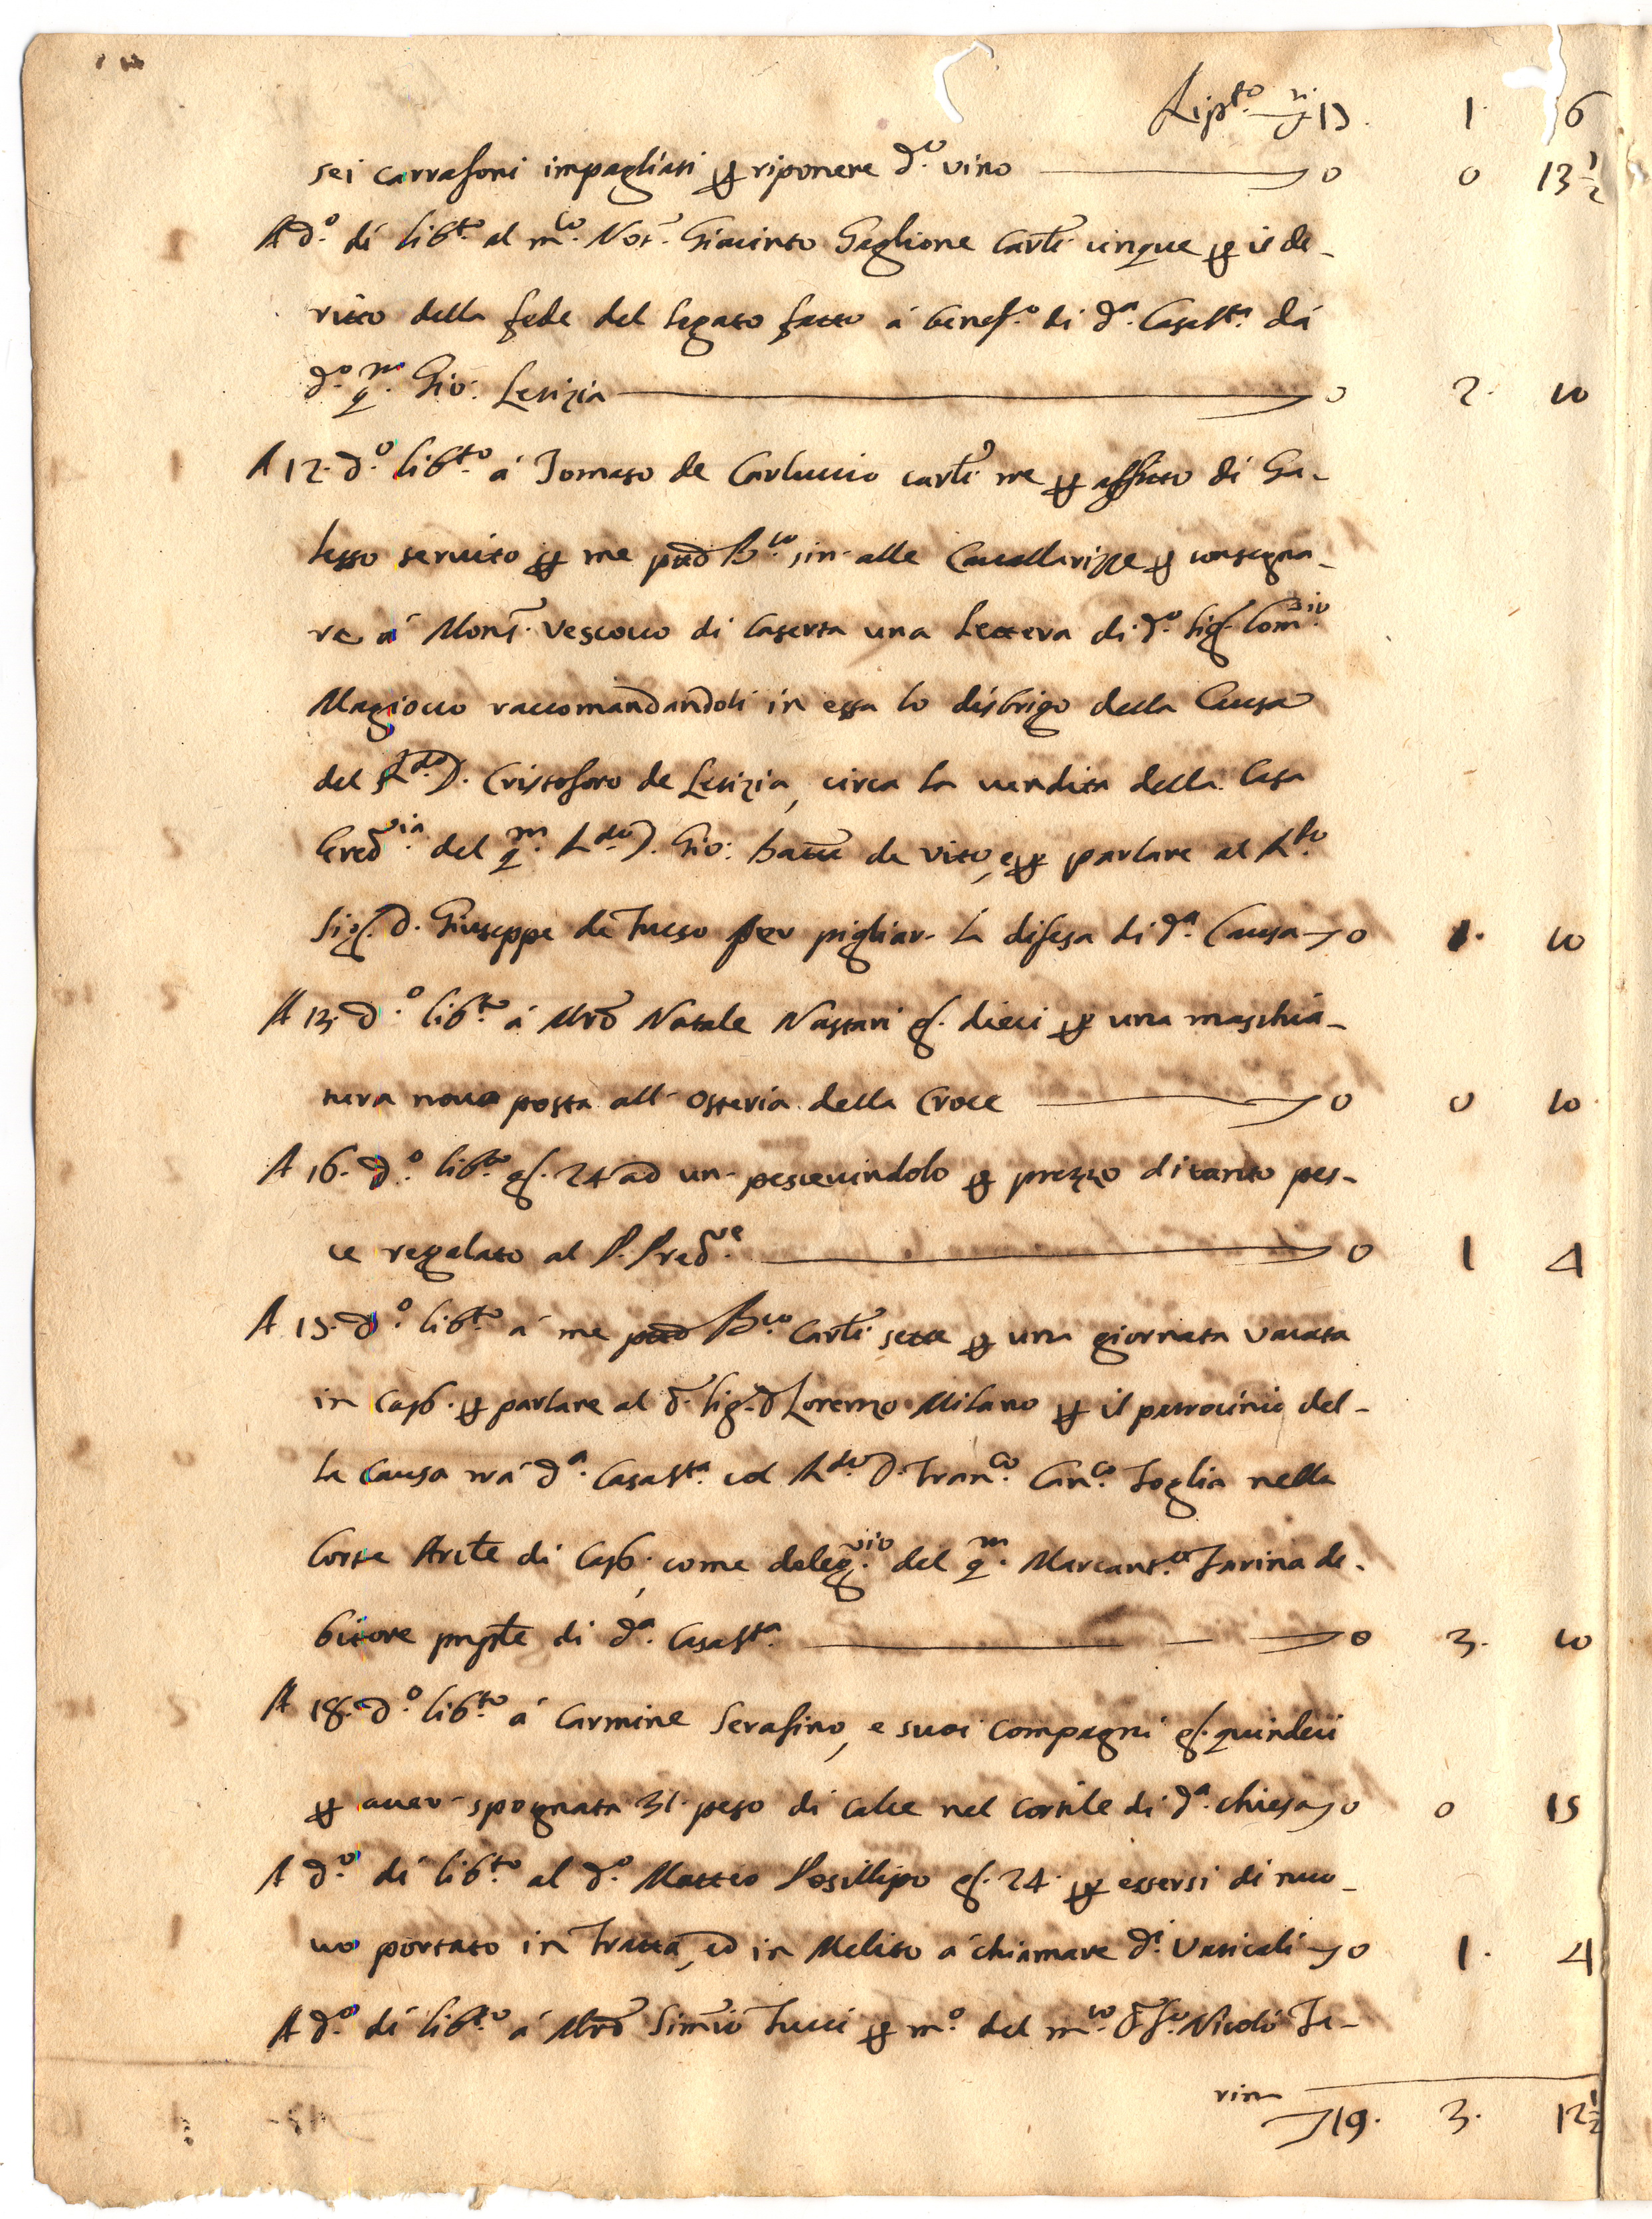 Rip.to D.i 15. 1. 6
sei carrafoni impagliati per riponere d.o vino — 0 0 13 1/2
A d.o dì lib.to al m.co Not.r Giacinto Gaglione Carl.i cinque per il de-
ritto della fede del legato fatto á benef.o di d.a CasaS.ta dá
d.o q.m Gio: Letizia — 0 2. 10
A 12. d.o lib.to á Tomaso de Carluccio carl.i tre per affitto di Ga-
lesso servito per me B.co sin' alle Cavallarizze per consegna-
re á Mons.r Vescovo di Caserta una lettera di d.o Sig.r Com.rio
Magiocco raccomandandoli in essa lo disbrigo della Causa
del R.do D. Cristofaro de Letizia, circa la vendita della Casa
Ered.ria del q.m R.do D. Gio: Batt.a de Vito, e per parlare al R.do
Sig.r D. Giuseppe de Fusco per pigliar' la difesa di d.a Causa — 0 1. 10
A 13. d.o lib.to á M.ro Natale Nastari g.a dieci per una maschia-
tura nova posta all' Osteria della Croce — 0 0 10
A 16. d.o lib.to g.a 24 ad un' pescevindolo per prezzo di tanto pes-
ce regalato al P. Pred.re — 0 1 4
A 15. d.o lib.to á me B.co Carl.i sette per una giornata vacata
in Cap. per parlare al d.r Sig.r D Lorenzo Milano per il patrocinio del-
la Causa trá d.a CasaS.ta col R.do D. Fran.co Can.co Foglia nella
Corte Arciv.le di Cap. come deleg.rio del q.m Marcant.o Farina de-
bitore di d.a CasaS.ta — 0 3. 10
A 18. d.o lib.to á Carmine Serafino, e suoi compagni g.a quindeci
per aver' spognata 31. peso di calce nel cortile di d.a chiesa — 0 0 15
A d.o dì lib.to al d.o Matteo Posillipo g.a 24. per essersi di nuo-
vo portato in Fratta, ed in Melito á chiamare d.i Vaticali — 0 1. 4
A d.o dì lib.to á M.ro Simio Fucci per m.o del m.co Nicolò Fe-
rina
19. 3. 12 1/2